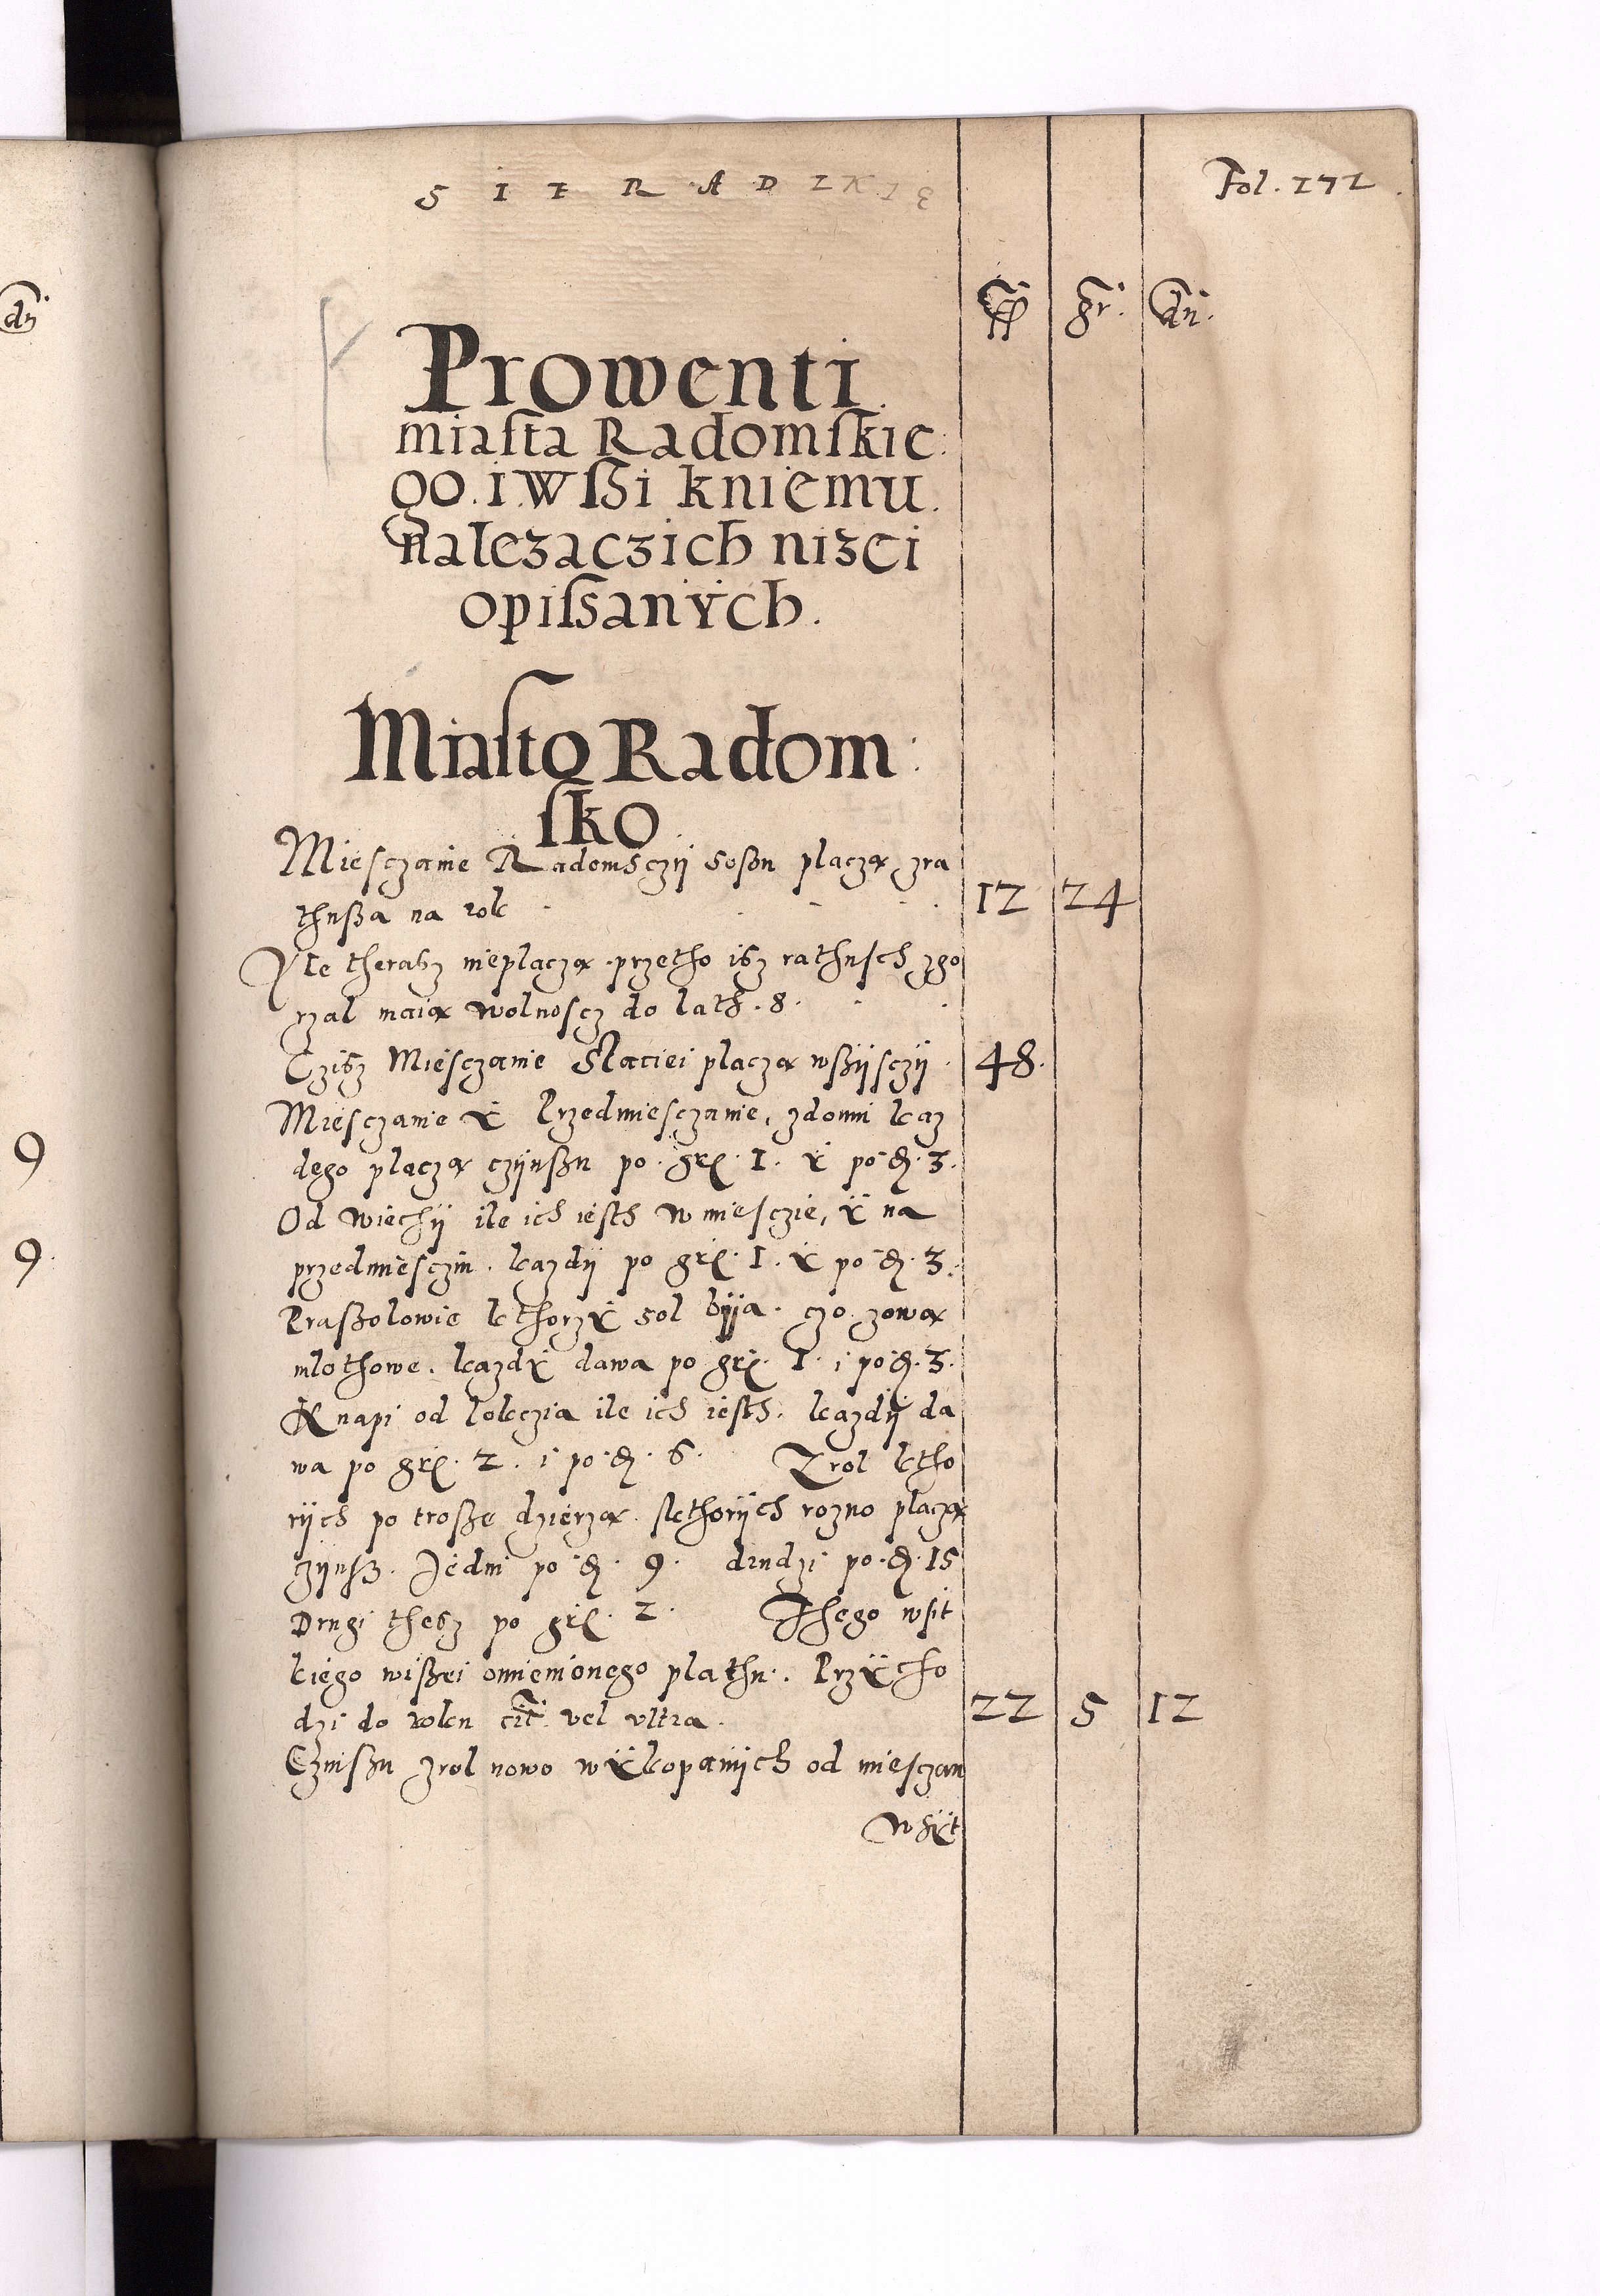 SIERADZKIE
Fol. 272.
gr. dn.
dn
Prowenti
miasta Radomskie
go. i wssi kniemu
nalezaczich nizei
opissanÿch.
Miasto Radom
sko
Miesczanie Radomsczÿ sossu placza zra
thussa na rok 12 24
Ale therasz nieplacza przetho isz rathusch zgo
rzal maia wolnoscz do lath. 8.
Czisz Miesczanie Staciei placza wssÿsczÿ 48.
Miesczanie ÿ Przedmiesczanie, zdomu kaz
dego placza czÿnssu po gr. 1. ÿ po d. 3.
Od wiechÿ ile ich iesth w miesczie, ÿ na
przedmiesczin. kazdÿ po gr. 1. ÿ po d. 3.
Prassolowie kthorzÿ sol bÿia. czo zowa
mlothowe. kazdÿ dawa po gr. 1. i po d. 3.
Knapi od lokczia ile ich iesth. kazdÿ da
wa po gr. 2. i po d. 6. Z rol ktho
rÿch po trosse dzierza. skthorÿch rozno placza
czÿnss. Jedni po d. 9. drudzi po d. 15
Drugi thesz po gr. 2. Thego wsit
kiego wissei omienionego plathu. Przÿcho
dzi do roku cit. vel vltra. 22 5 12
Czinssu zrol nowo wÿkopanÿch od miesczan
wsÿt
9
9.